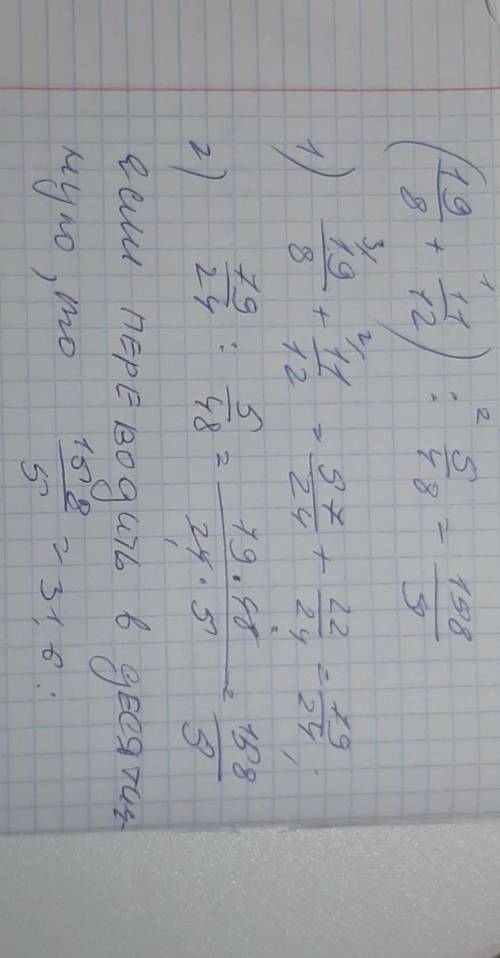 (19/8 + 11/12) : 5/48 = 158/5
1) 19/8 + 11/12 = 57/24 + 22/24 = 79/24;
2) 79/24 : 5/48 = 79·48/24·5 = 158/5
Если переводить в десятич-
ную, то 158/5 = 31,6.